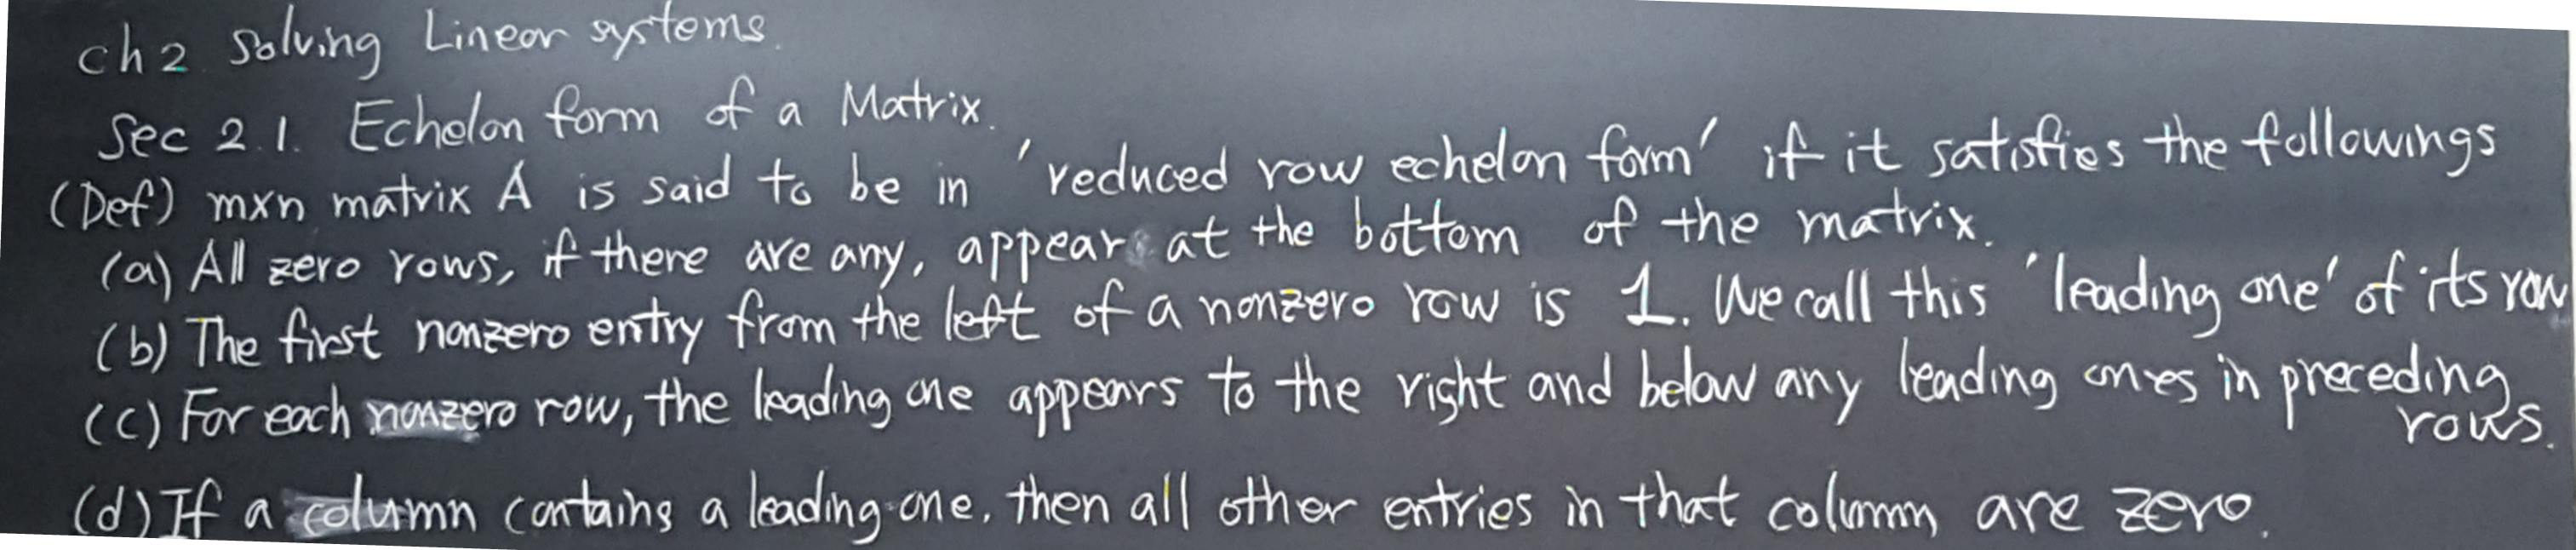 Ch 2 Solving Linear systems.
Sec 2.1. Echelon form of a Matrix.
(Def) mxn matrix A is said to be in 'reduced row echelon form' if it satisfies the followings
(a) All zero rows, if there are any, appear at the bottom of the matrix.
(b) The first nonzero entry from the left of a nonzero row is 1. We call this 'leading one' of its row
(c) For each nonzero row, the leading one appears to the right and below any leading ones in preceding
rows.
(d) If a column contains a leading one, then all other entries in that column are zero.